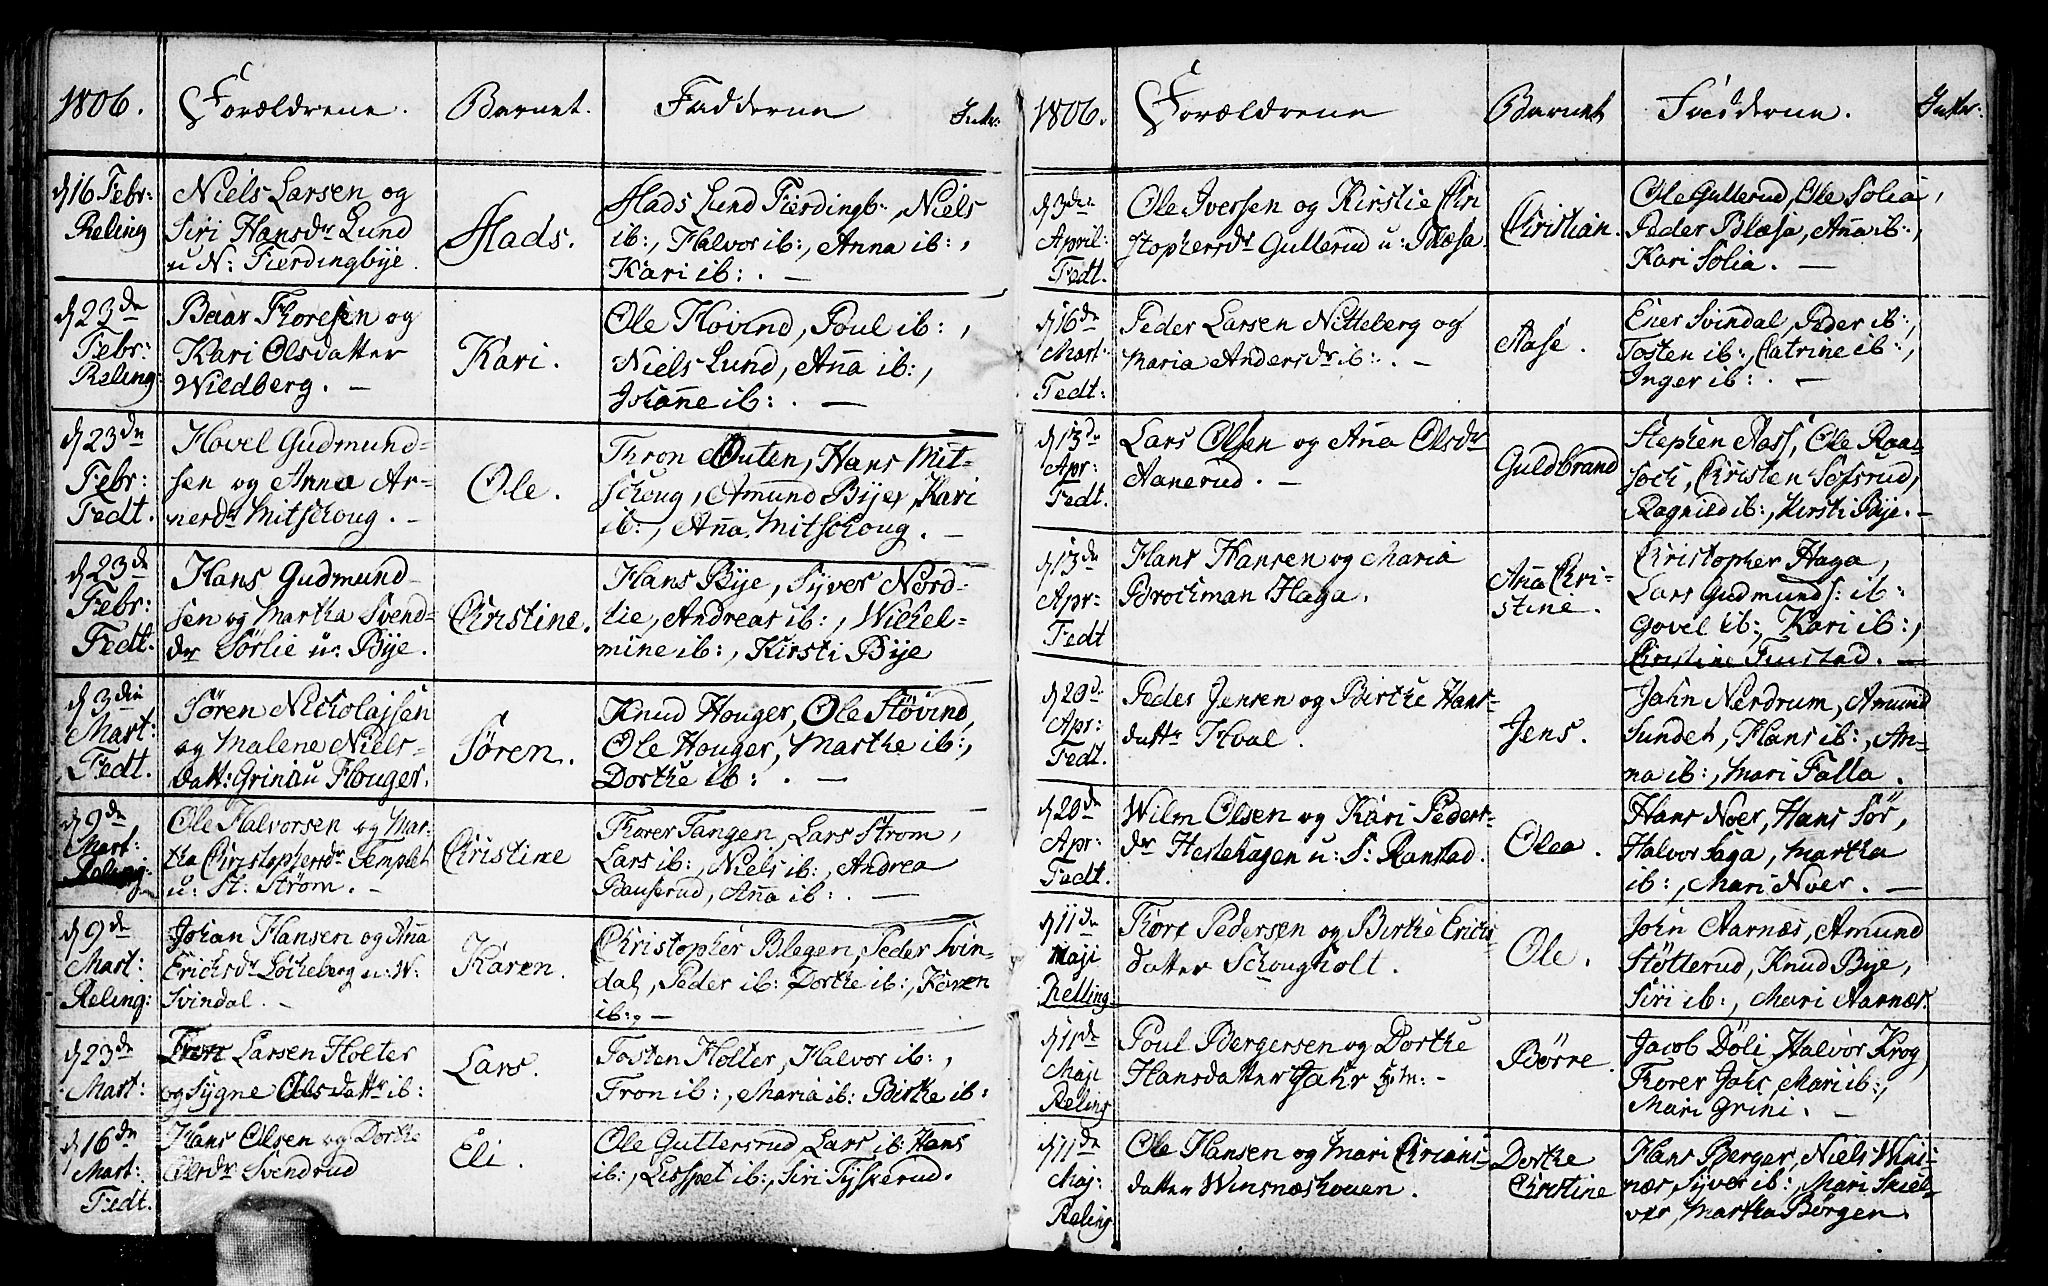 1806. Forældrene. Barnet. Fadderne Intr:
d 16 Febr: Reling
Niels Larsen og
Siri Hansdr Lund
u N: Fierdingbye.
Mads.
Mads Lund Fierdingb:, Niels
ib:, Halvor ib:, Anna ib:,
Kari ib:. —
d 23de Febr: Reling
Baar Thoresen og
Kari Olsdatter
Wildberg. —
Kari.
Ole Hovind, Poul ib:,
Niels Lund, Aña ib:,
Johañe ib:. —
d 23de Febr: Fedt.
Hovel Gudmund-
sen og Anna Ar-
nesdr Mitschoug. —
Ole.
Thron Outen, Hans Mit-
schoug, Amund Bije, Kari
ib:, Aña Mitschoug. —
d 23de Febr: Fedt.
Hans Gudmund-
sen og Martha Svend-
dr Sörlie u: Bije.
Christine.
Hans Bije, Syver Nord-
lie, Andreas ib:, Wilhel-
mine ib:, Kirsti Bije
d 3die Mart: Fedt.
Sören Nicholajsen
og Malene Niels-
datt: Grinau Houger.
Sören.
Knud Houger, Ole Hövind,
Ole Houger, Marthe ib:,
Dorthe ib:. —
d 9de Mart: Reling:
Ole Halvorsen og Mar-
tha Christophersdr Templet
u: St: Ström. —
Christine
Thorer Tangen, Lars Strom,
Lars ib:, Niels ib:, Andrea
Bauserud, Aña ib:. —
d 9de Mart: Reling:
Johan Hansen og Aña
Erichsdr Löcheberg u: W:
Svindal. —
Karen.
Christopher Blegen, Peder Svin-
dal, Peder ib: Dorthe ib:, Karen
ib:, —
d 23de Mart:
Tron Larsen Holter
og Sygne Olsdattr ib:
Lars.
Tosten Holter, Halvor ib:,
Tron ib:, Maria ib: Birthe ib:
d 16de Mart: Fedt.
Hans Olsen og Dorthe
Olsdr Svendrud
Eli.
Ole Guttersrud, Lars ib: Hans
ib:, Lisspet ib:, Siri Tyskerud.
1806. Forældrene Barnet Fadderne. Intr:
d 3die April: Fedt.
Ole Iversen og Kirstie Chri
stophersdr Gullerud u: Blæsa.
Christian.
Ole Gullerud, Ole Solia,
Peder Blæsa, Aña ib:,
Kari Solia. —
d 16de Mart: Fedt:
Peder Larsen Nitteberg og
Maria Andersdr ib:. —
Aase.
Ener Svindal, Peder ib:,
Tosten ib:, Catrine ib:,
Inger ib:. —
d 13de Apr: Fedt.
Lars Olsen og Aña Olsdr
Aanerud. —
Guldbrand
Stephen Aass, Ole Raa-
soch, Christen Sofsrud,
Ragnild ib:, Kirsti Bije. —
d 13de Apr: Fedt
Hans Hansen og Maria
Brochman Haga.
Aña Chri-
stine.
Christopher Haga,
Lars Gudmunds: ib:
Govel ib:, Kari ib:,
Christine Imstad. —
d 20de Apr: Fedt.
Peder Jensen og Birthe Hans-
dattr Hval.
Jens.
John Nerdrum, Amund
Sundet, Hans ib:, An-
na ib:, Mari Falla.
d 20de Apr: Fedt.
Wilm Olsen og Kari Peders-
dr Hestehagen u: S: Ranstad.
Olea.
Hans Noer, Hans Sör,
Halvor Saga, Martha
ib:, Mari Noer. —
d 11de Maji Relling.
Thore Pedersen og Birthe Erichs
datter Schougholt.
Ole.
John Aarnæs, Amund
Stötterud, Knud Bye,
Siri ib:, Mari Aarnæs.
d 11de Maji Reling
Poul Bergersen og Dorthe
Hansdatter Jahr —
Børre.
Jacob Döli, Halvor Krog,
Thorer Jahr, Mari ib:,
Mari Grini. —
d 11de Maj: Reling
Ole Hansen og Mari Christians
datter Winsnæshouen.
Dorthe
Christine
Hans Berger, Niels Wins-
næs, Syver ib:, Mari Skiel-
ver, Martha Børgen.